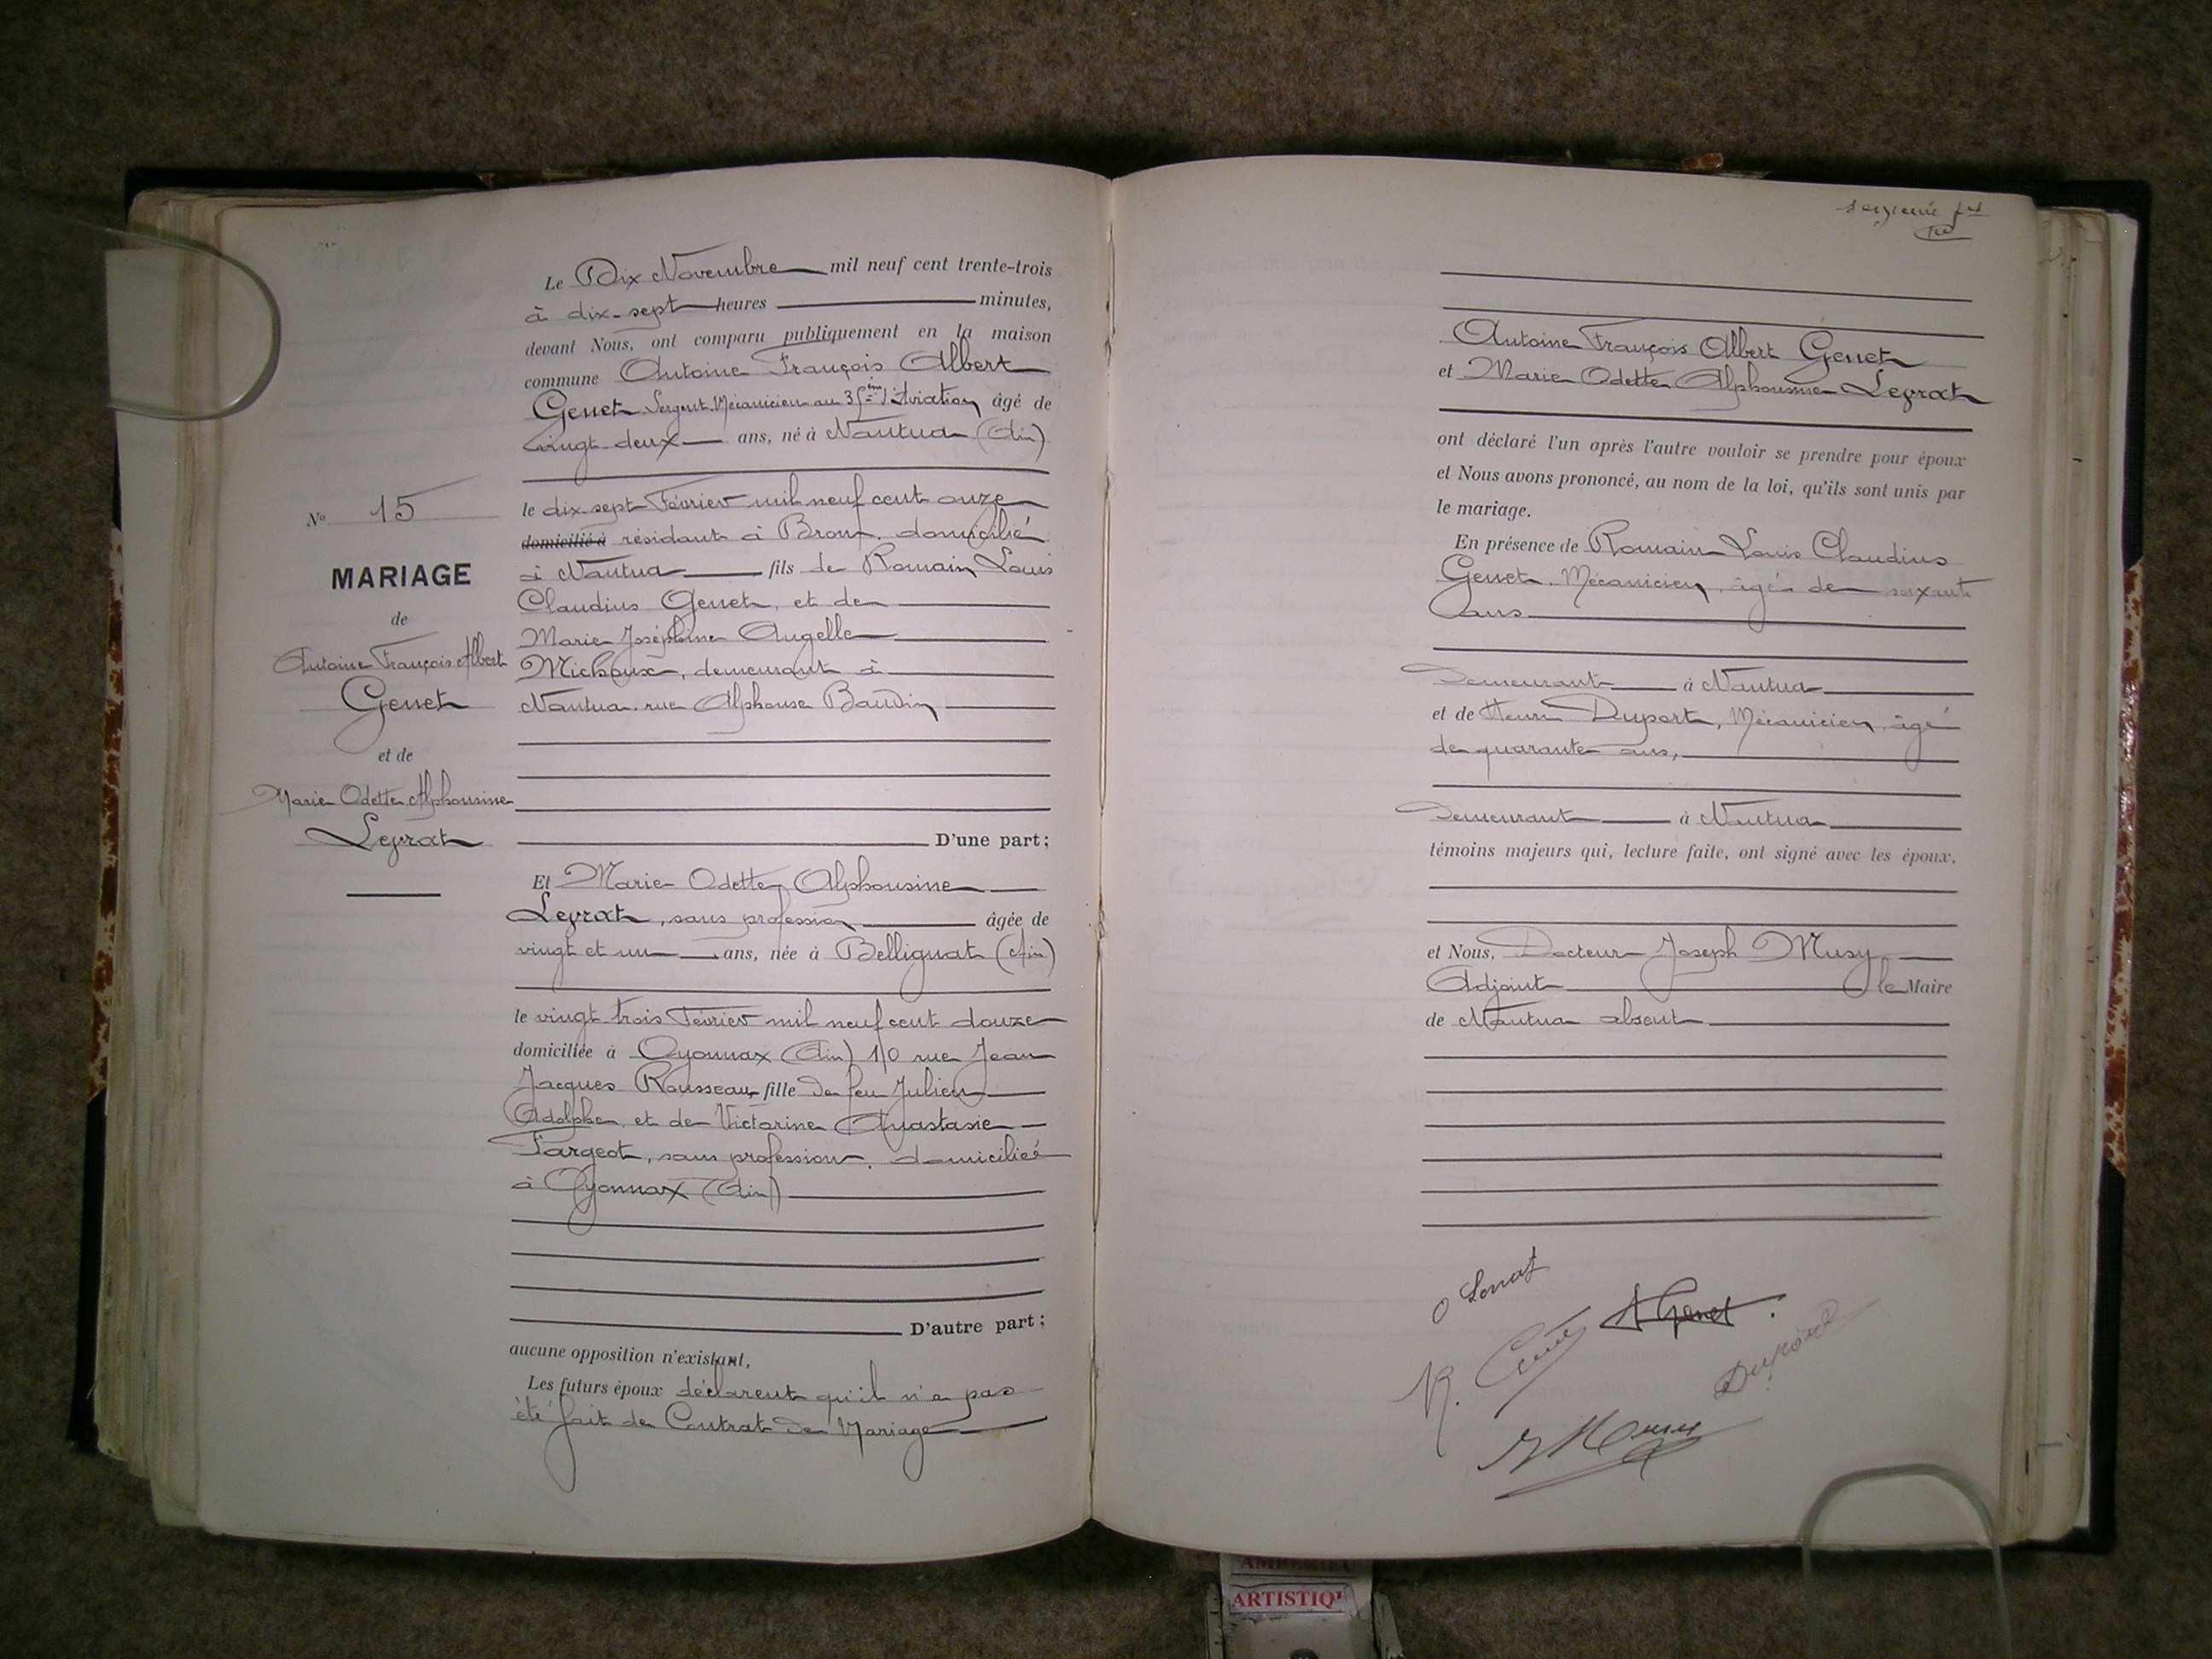 Le Dix Novembre mil neuf cent trente-trois
à dix-sept heures minutes,
devant Nous, ont comparu publiquement en la maison
commune Antoine François Albert
Genet Sergent Mécanicien au 35ème d'Aviation âgé de
vingt deux ans, né à Nantua (Ain)
le dix sept Février mil neuf cent onze
domicilié à résidant à Bron, domicilié
à Nantua fils de Romain Louis
Claudius Genet, et de
Marie Joséphine Angelle
Michoux, demeurant à
Nantua, rue Alphonse Baudin
D'une part;
Et Marie Odette Alphonsine
Leyrat, sans profession âgée de
vingt et un ans, née à Bellignat (Ain)
le vingt trois Février mil neuf cent douze
domiciliée à Oyonnax (Ain) rue Jean
Jacques Rousseau, fille de feu Julien
Adolphe, et de Victorine Anastasie
Fargeot, sans profession, domiciliée
à Oyonnax (Ain)
D'autre part;
aucune opposition n'existant,
Les futurs époux déclarent qu'il n'a pas
été fait de Contrat de Mariage
No 15
MARIAGE
de
Antoine François Albert
Genet
et de
Marie Odette Alphonsine
Leyrat
Antoine François Albert Genet
et Marie Odette Alphonsine Leyrat
ont déclaré l'un après l'autre vouloir se prendre pour époux
et Nous avons prononcé, au nom de la loi, qu'ils sont unis par
le mariage.
En présence de Romain Louis Claudius
Genet, Mécanicien, âgé de soixante
ans
Demeurant à Nantua
et de Henri Duport, Mécanicien, âgé
de quarante ans,
Demeurant à Nantua
témoins majeurs qui, lecture faite, ont signé avec les époux.
et Nous, Docteur Joseph Musy
Adjoint le Maire
de Nantua absent
A Genet
R. Genet
J Musy
ARTISTIQ